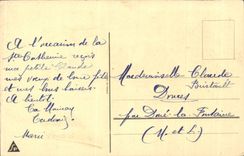 A l'occasion de la
Ste Catherine reçois
ma petite Claude
mes vœux de bonne fête
et mes bons baisers.
A bientôt
Ta
Marie
Mademoiselle Claude
Douces
par Doué la Fontaine
(M. et L.)